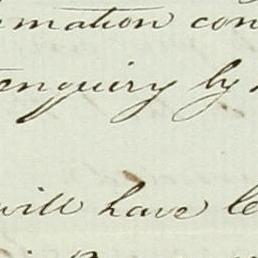 mation con
enquiry by
will have le